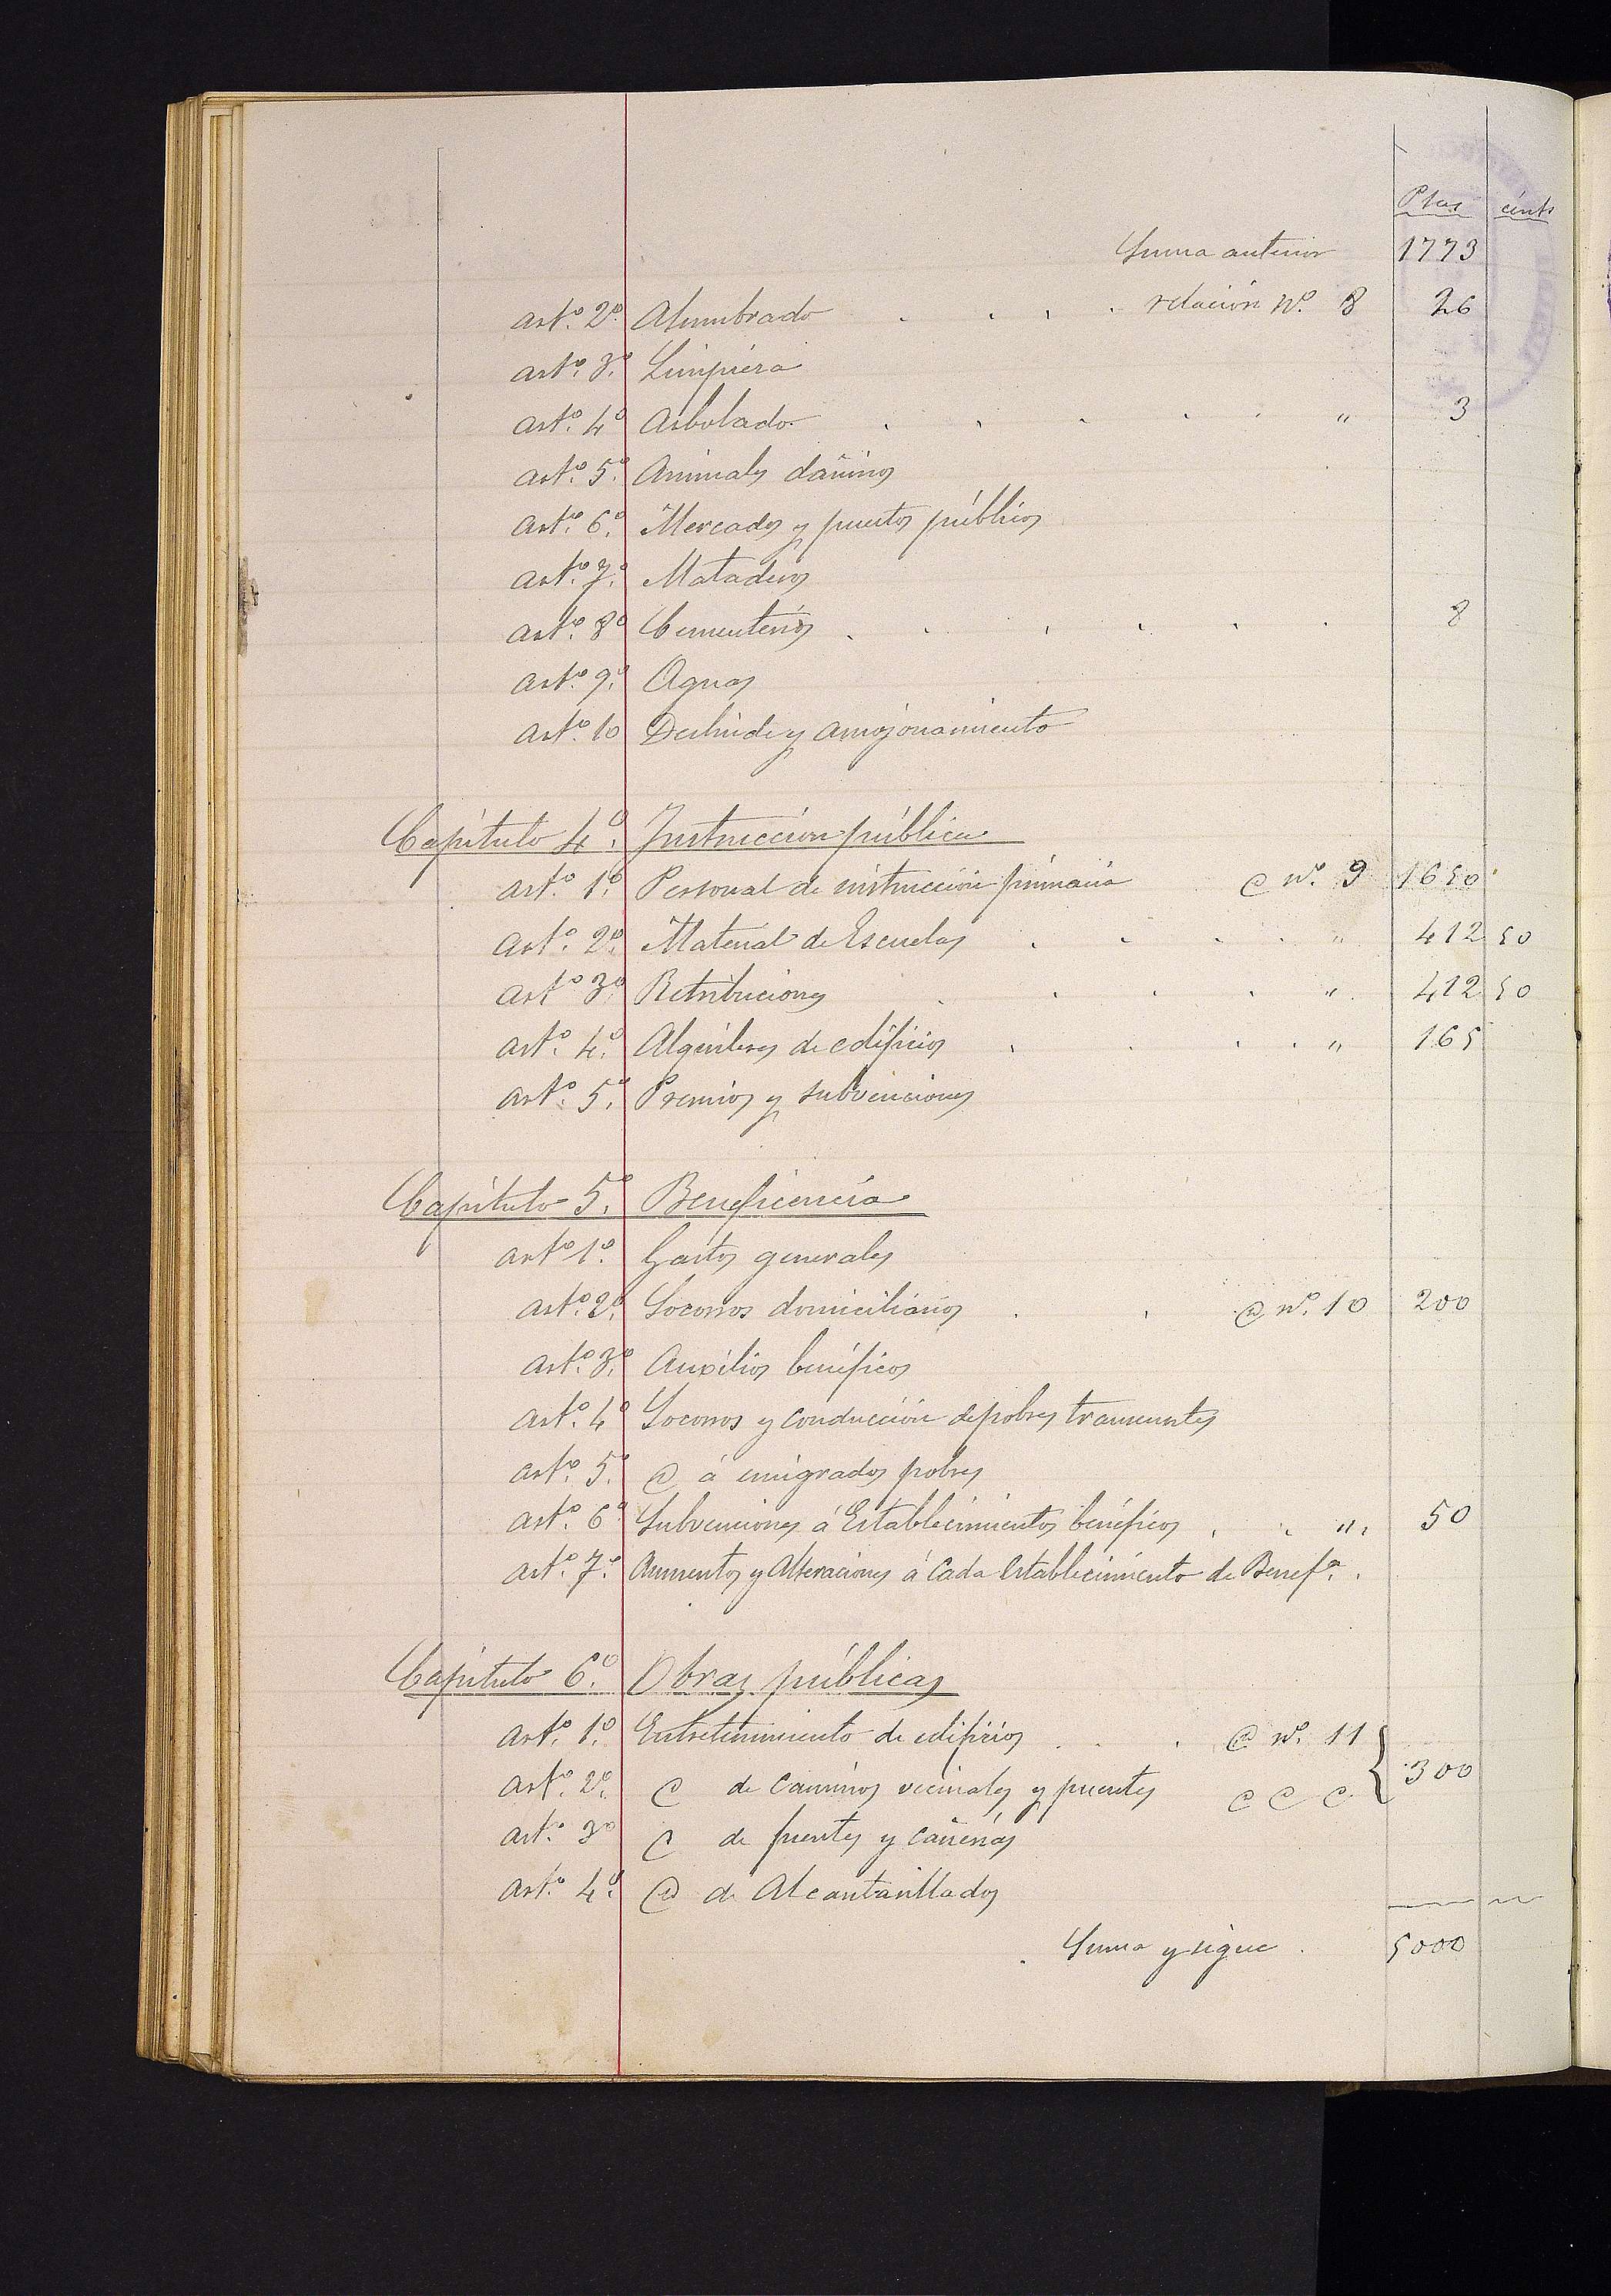 Ptas cénts
Suma anterior 1773
artº. 2º. Alumbrado . . . . relación nº. 8 26
artº. 3º. Limpieza
artº. 4º Arbolado . . . . . " 3
artº. 5º. Animales dañinos
artº. 6º. Mercados y puestos públicos
artº. 7º. Mataderos
artº. 8º Cementerios . . . . . . 8
artº. 9º. Aguas
artº. 10 Deslinde y amojonamiento
Capítulo 4º. Instrucción pública
artº. 1º. Personal de instrucción primaria @ nº. 9 1650
artº. 2º. Material de Escuelas . . . . " 412 50
artº 3º. Retribuciones . . . . " 412 50
artº. 4º. Alquileres de edificios . . . . " 165
artº. 5º. Premios y subvenciones
Capítulo 5º. Beneficencia
artº 1º. Gastos generales
artº. 2º. Socorros domiciliarios . . @ nº. 10 200
artº. 3º. Auxilios benéficos
artº. 4º Socorros y conducción de pobres transeuntes
artº. 5º. @ á emigrados pobres
artº. 6º Subvenciones á Establecimientos benéficos . . " . 50
artº. 7º. Aumentos y Alteraciones á Cada establecimiento de Benefª. .
Capítulo 6º. Obras públicas
artº. 1º. Entretenimiento de edificios . . . @ nº. 11
artº. 2º. @ de Caminos vecinales y puentes @ @ @ } 300
artº. 3º @ de fuentes y Cañerías
artº. 4º. @ de Alcantarillados
Suma y sigue . 5000